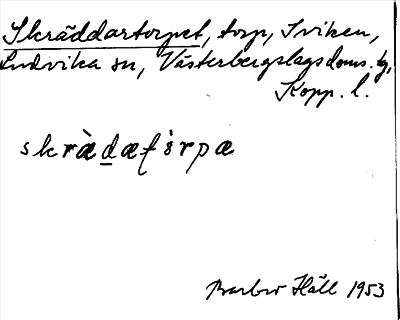 Skräddartorpet, torp, Sviken,
Ludvika sn, Västerbergslags doms. tg,
Kopp. l.
skrædætorpæ
Barbro Häll 1953